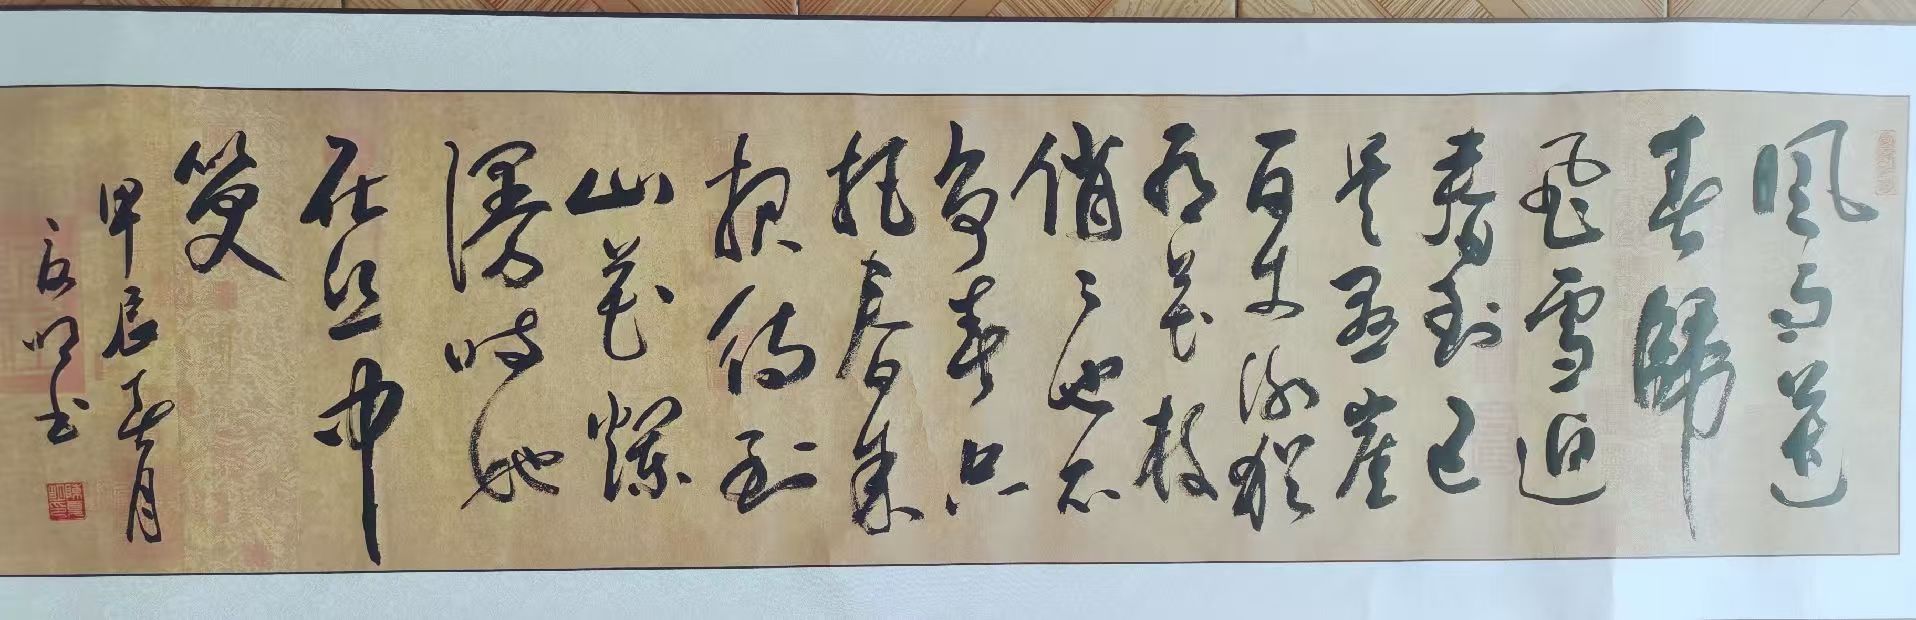 風雨送
春歸
飛雪迎
春到已
是悬崖
百丈冰猶
有花枝
俏々也不
争春只
把春来
报待到
山花爛
漫時她
在丛中
笑
甲辰春月
明书